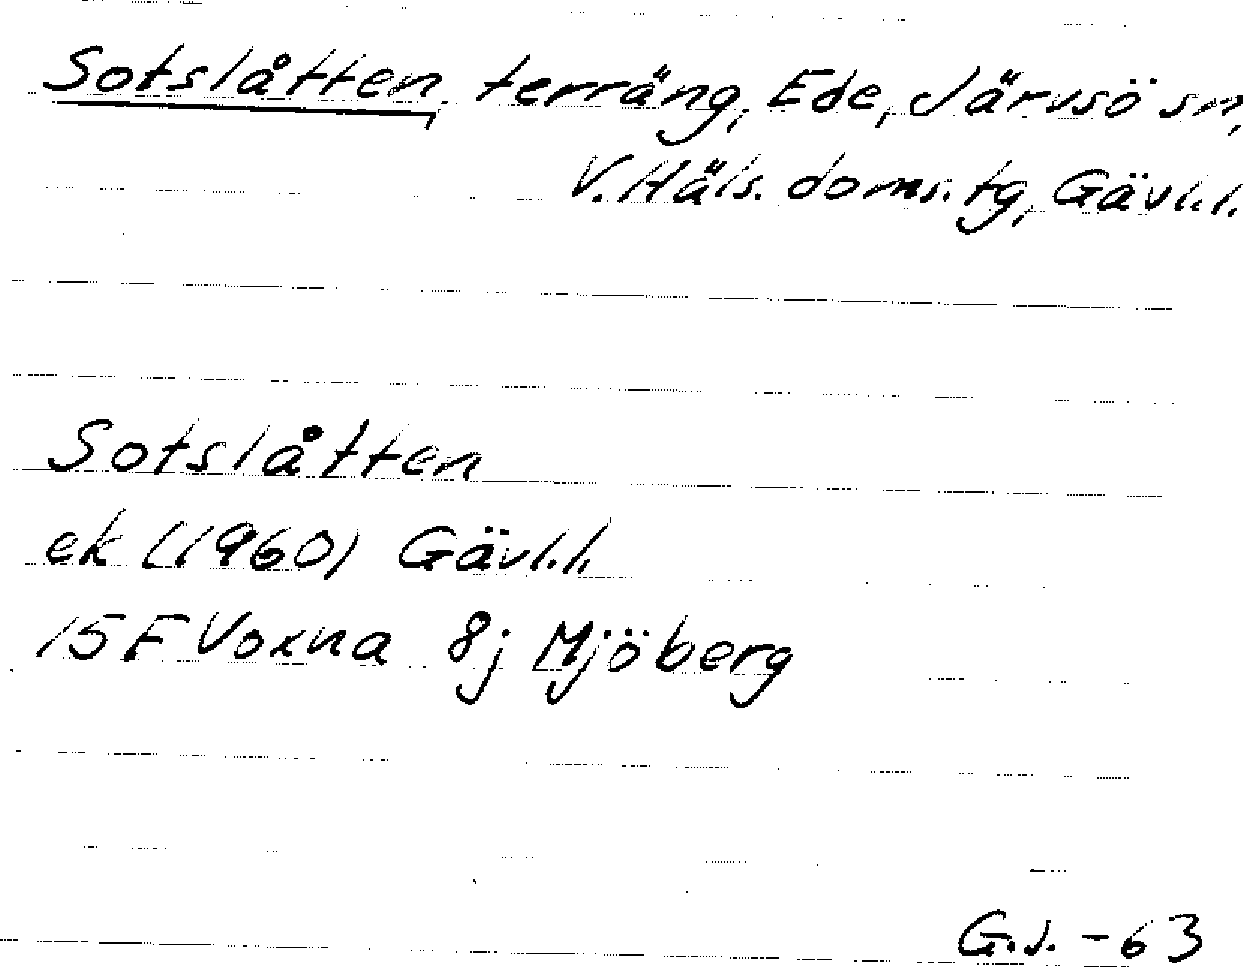 Sotslåtten, terräng, Ede, Järvsö sn,
V. Häls. doms. tg, Gävl. l.
Sotslåtten
ek (1960) Gävl. l.
15 F Voxna 8j Mjöberg
G.J. -63